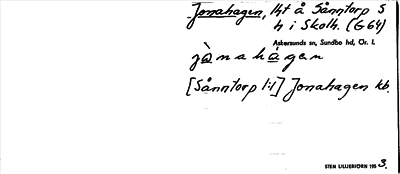 Jonahagen, lht å Sånntorp S
h i Skolh. (G 64)
Askersunds sn, Sundbo hd, Ör. l.
jò̱nahá̱gen
[Sånntorp 1:1] Jonahagen kb.
STEN LILJEBJÖRN 1953.